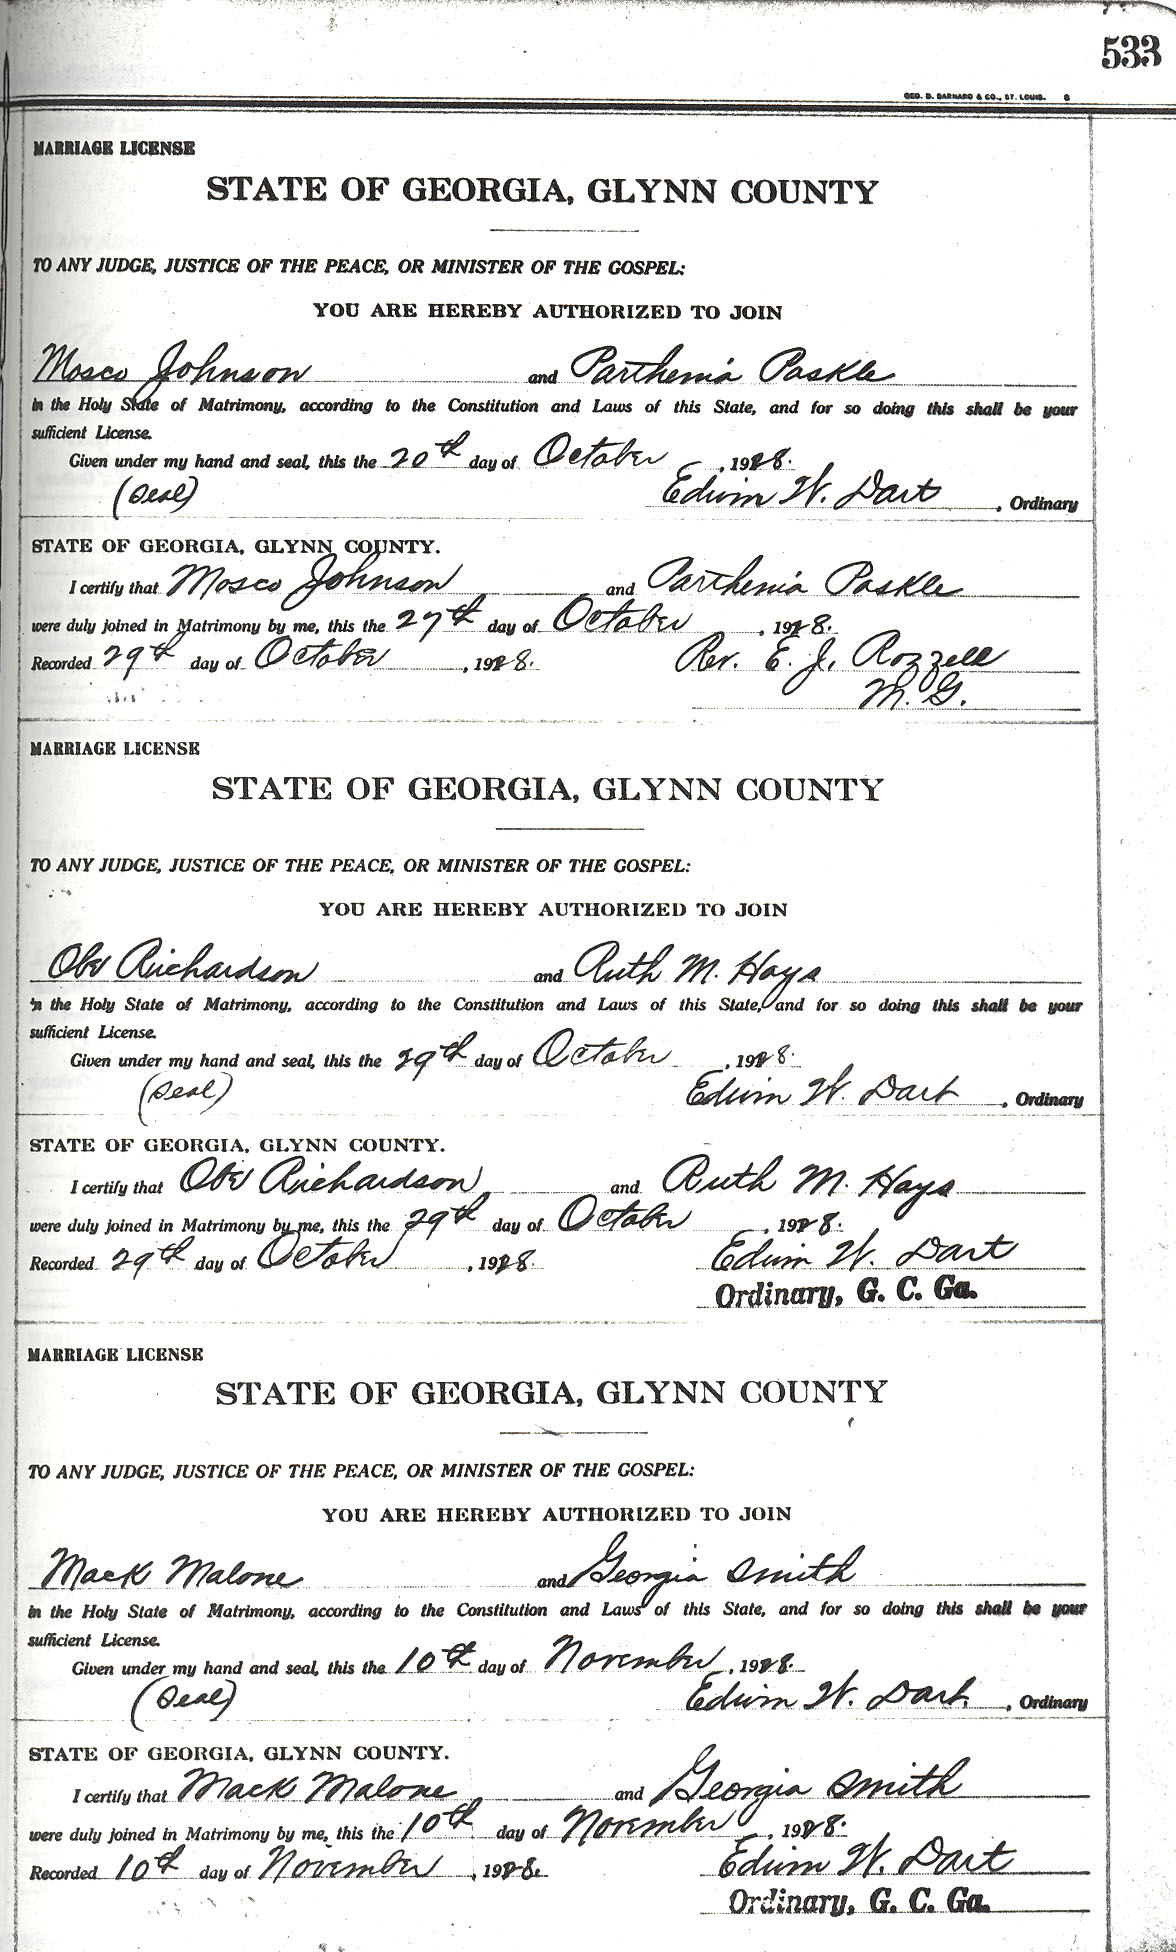 533
GEO. D. BARNARD & CO., ST. LOUIS. B
MARRIAGE LICENSE
STATE OF GEORGIA, GLYNN COUNTY
TO ANY JUDGE, JUSTICE OF THE PEACE, OR MINISTER OF THE GOSPEL:
YOU ARE HEREBY AUTHORIZED TO JOIN
Mosco Johnson and Parthenia Paskle
in the Holy State of Matrimony, according to the Constitution and Laws of this State, and for so doing this shall be your
sufficient License.
Given under my hand and seal, this the 20th day of October, 1928.
(Seal) Edwin W. Dart, Ordinary
STATE OF GEORGIA, GLYNN COUNTY.
I certify that Mosco Johnson and Parthenia Paskle
were duly joined in Matrimony by me, this the 27th day of October, 1928.
Recorded 29th day of October, 1928. Rev. E. J. Rozzell
M. G.
MARRIAGE LICENSE
STATE OF GEORGIA, GLYNN COUNTY
TO ANY JUDGE, JUSTICE OF THE PEACE, OR MINISTER OF THE GOSPEL:
YOU ARE HEREBY AUTHORIZED TO JOIN
Obe Richardson and Ruth M. Hays
in the Holy State of Matrimony, according to the Constitution and Laws of this State, and for so doing this shall be your
sufficient License.
Given under my hand and seal, this the 29th day of October, 1928.
(Seal) Edwin W. Dart, Ordinary
STATE OF GEORGIA, GLYNN COUNTY.
I certify that Obe Richardson and Ruth M. Hays
were duly joined in Matrimony by me, this the 29th day of October, 1928.
Recorded 29th day of October, 1928. Edwin W. Dart
Ordinary, G. C. Ga.
MARRIAGE LICENSE
STATE OF GEORGIA, GLYNN COUNTY
TO ANY JUDGE, JUSTICE OF THE PEACE, OR MINISTER OF THE GOSPEL:
YOU ARE HEREBY AUTHORIZED TO JOIN
Mack Malone and Georgia Smith
in the Holy State of Matrimony, according to the Constitution and Laws of this State, and for so doing this shall be your
sufficient License.
Given under my hand and seal, this the 10th day of November, 1928.
(Seal) Edwin W. Dart, Ordinary
STATE OF GEORGIA, GLYNN COUNTY.
I certify that Mack Malone and Georgia Smith
were duly joined in Matrimony by me, this the 10th day of November, 1928.
Recorded 10th day of November, 1928. Edwin W. Dart
Ordinary, G. C. Ga.